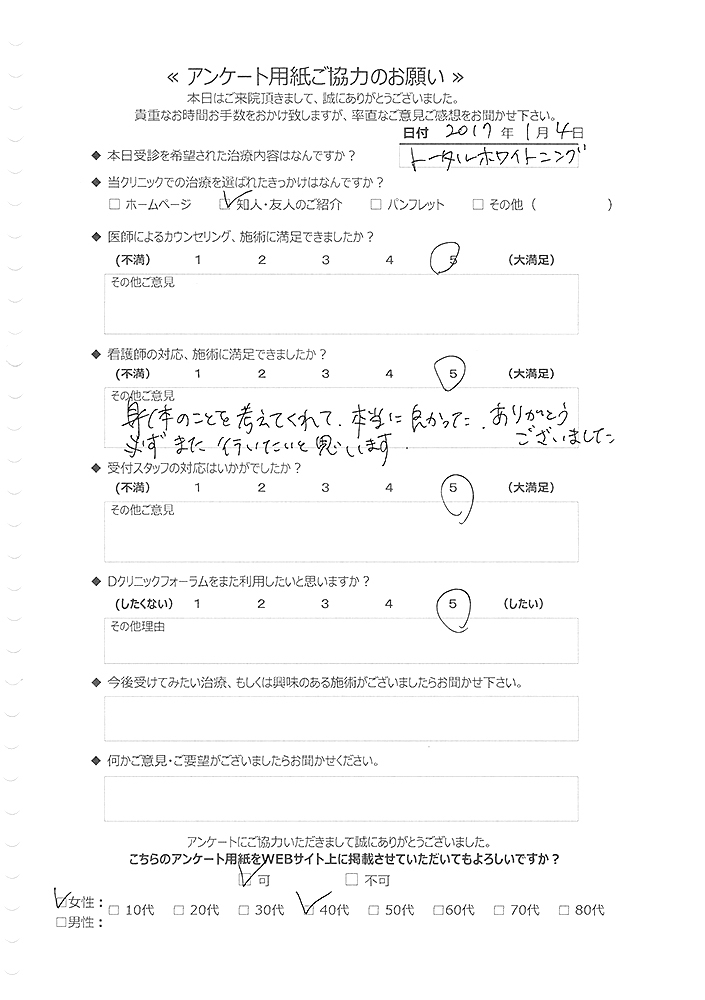 ≪ アンケート用紙ご協力のお願い ≫
本日はご来院頂きまして、誠にありがとうございました。
貴重なお時間お手数をおかけ致しますが、率直なご意見ご感想をお聞かせ下さい。
日付 2017 年 1 月 4 日
◆ 本日受診を希望された治療内容はなんですか？ トータルホワイトニング
◆ 当クリニックでの治療を選ばれたきっかけはなんですか？
□ ホームページ ☑ 知人・友人のご紹介 □ パンフレット □ その他（ ）
◆ 医師によるカウンセリング、施術に満足できましたか？
(不満) 1 2 3 4 5 (大満足)
その他ご意見
◆ 看護師の対応、施術に満足できましたか？
(不満) 1 2 3 4 5 (大満足)
その他ご意見
身体のことを考えてくれて、本当に良かった。ありがとう
ございました
必ずまた行いたいと思います.
◆ 受付スタッフの対応はいかがでしたか？
(不満) 1 2 3 4 5 (大満足)
その他ご意見
◆ Dクリニックフォーラムをまた利用したいと思いますか？
(したくない) 1 2 3 4 5 (したい)
その他理由
◆ 今後受けてみたい治療、もしくは興味のある施術がございましたらお聞かせ下さい。
◆ 何かご意見・ご要望がございましたらお聞かせください。
アンケートにご協力いただきまして誠にありがとうございました。
こちらのアンケート用紙をWEBサイト上に掲載させていただいてもよろしいですか？
☑ 可 □ 不可
☑女性： □ 10代 □ 20代 □ 30代 ☑ 40代 □ 50代 □60代 □ 70代 □ 80代
□男性：